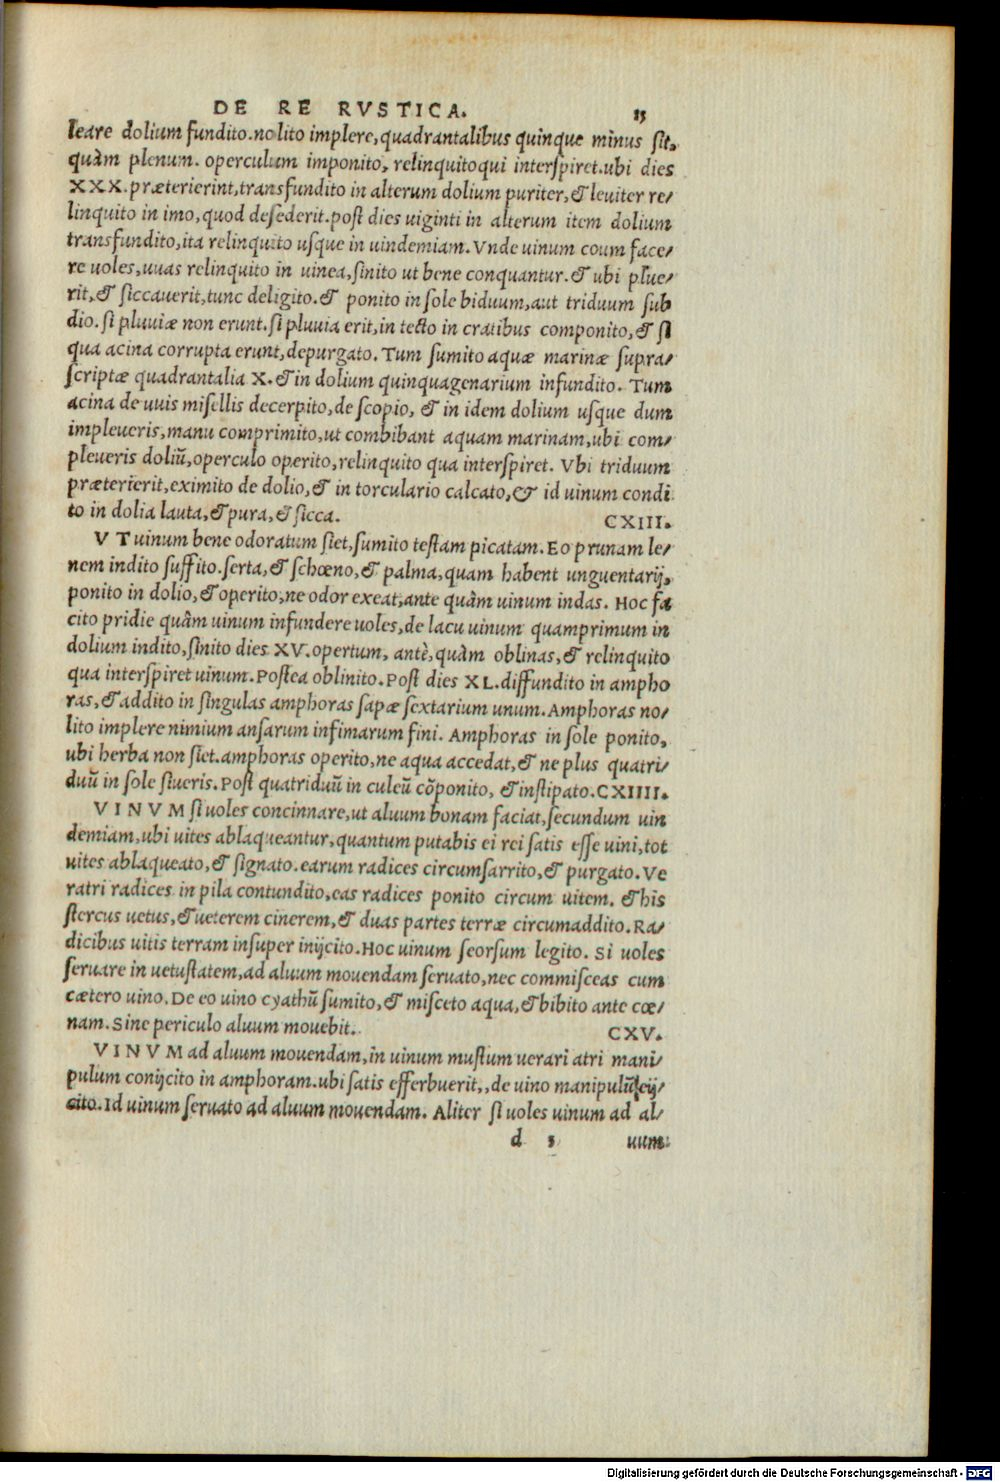 DE RE RVSTICA. 15
leare dolium fundito.nolito implere,quadrantalibus quinque minus sit,
quàm plenum. operculum imponito, relinquitoqui interspiret.ubi dies
XXX.præterierint,transfundito in alterum dolium puriter,& leuiter re/
linquito in imo,quod desederit.post dies uiginti in alterum item dolium
transfundito,ita relinquito usque in uindemiam.Vnde uinum coum face/
re uoles,uuas relinquito in uinea,sinito ut bene conquantur.& ubi plue/
rit,& siccauerit,tunc deligito.& ponito in sole biduum,aut triduum sub
dio.si pluuiæ non erunt.si pluuia erit,in tecto in cratibus componito,& si
qua acina corrupta erunt,depurgato.Tum sumito aquæ marinæ supra/
scriptæ quadrantalia X.& in dolium quinquagenarium infundito. Tum
acina de uuis misellis decerpito,de scopio, & in idem dolium usque dum
impleueris,manu comprimito,ut combibant aquam marinam,ubi com/
pleueris doliū,operculo operito,relinquito qua interspiret. Vbi triduum
præterierit,eximito de dolio,& in torculario calcato,& id uinum condi
to in dolia lauta,& pura,& sicca. CXIII.
VT uinum bene odoratum siet,sumito testam picatam.Eo prunam le/
nem indito suffito.serta,& schœno,& palma,quam habent unguentarij,
ponito in dolio,& operito,ne odor exeat,ante quàm uinum indas. Hoc fa
cito pridie quàm uinum infundere uoles,de lacu uinum quamprimum in
dolium indito,sinito dies XV.opertum, antè,quàm oblinas,& relinquito
qua interspiret uinum.Postea oblinito.Post dies XL.diffundito in ampho
ras,& addito in singulas amphoras sapæ sextarium unum.Amphoras no/
lito implere nimium ansarum infimarum fini. Amphoras in sole ponito,
ubi herba non siet.amphoras operito,ne aqua accedat,& ne plus quatri/
duū in sole siueris.Post quatriduū in culeū cōponito, & instipato.CXIIII.
VINVM si uoles concinnare,ut aluum bonam faciat,secundum uin
demiam,ubi uites ablaqueantur,quantum putabis ei rei satis esse uini,tot
uites ablaqueato,& signato.earum radices circumsarrito,& purgato.Ve
ratri radices in pila contundito,eas radices ponito circum uitem. & his
stercus uetus,& ueterem cinerem,& duas partes terræ circumaddito.Ra/
dicibus uitis terram insuper inijcito.Hoc uinum seorsum legito. Si uoles
seruare in uetustatem,ad aluum mouendam seruato,nec commisceas cum
cætero uino.De eo uino cyathū sumito,& misceto aqua,& bibito ante cœ/
nam.Sine periculo aluum mouebit. CXV.
VINVM ad aluum mouendam,in uinum mustum uerari atri mani/
pulum conijcito in amphoram.ubi satis efferbuerit,,de uino manipulū eij/
cito.Id uinum seruato ad aluum mouendam. Aliter si uoles uinum ad al/
d 3 uum
Digitalisierung gefördert durch die Deutsche Forschungsgemeinschaft - DFG